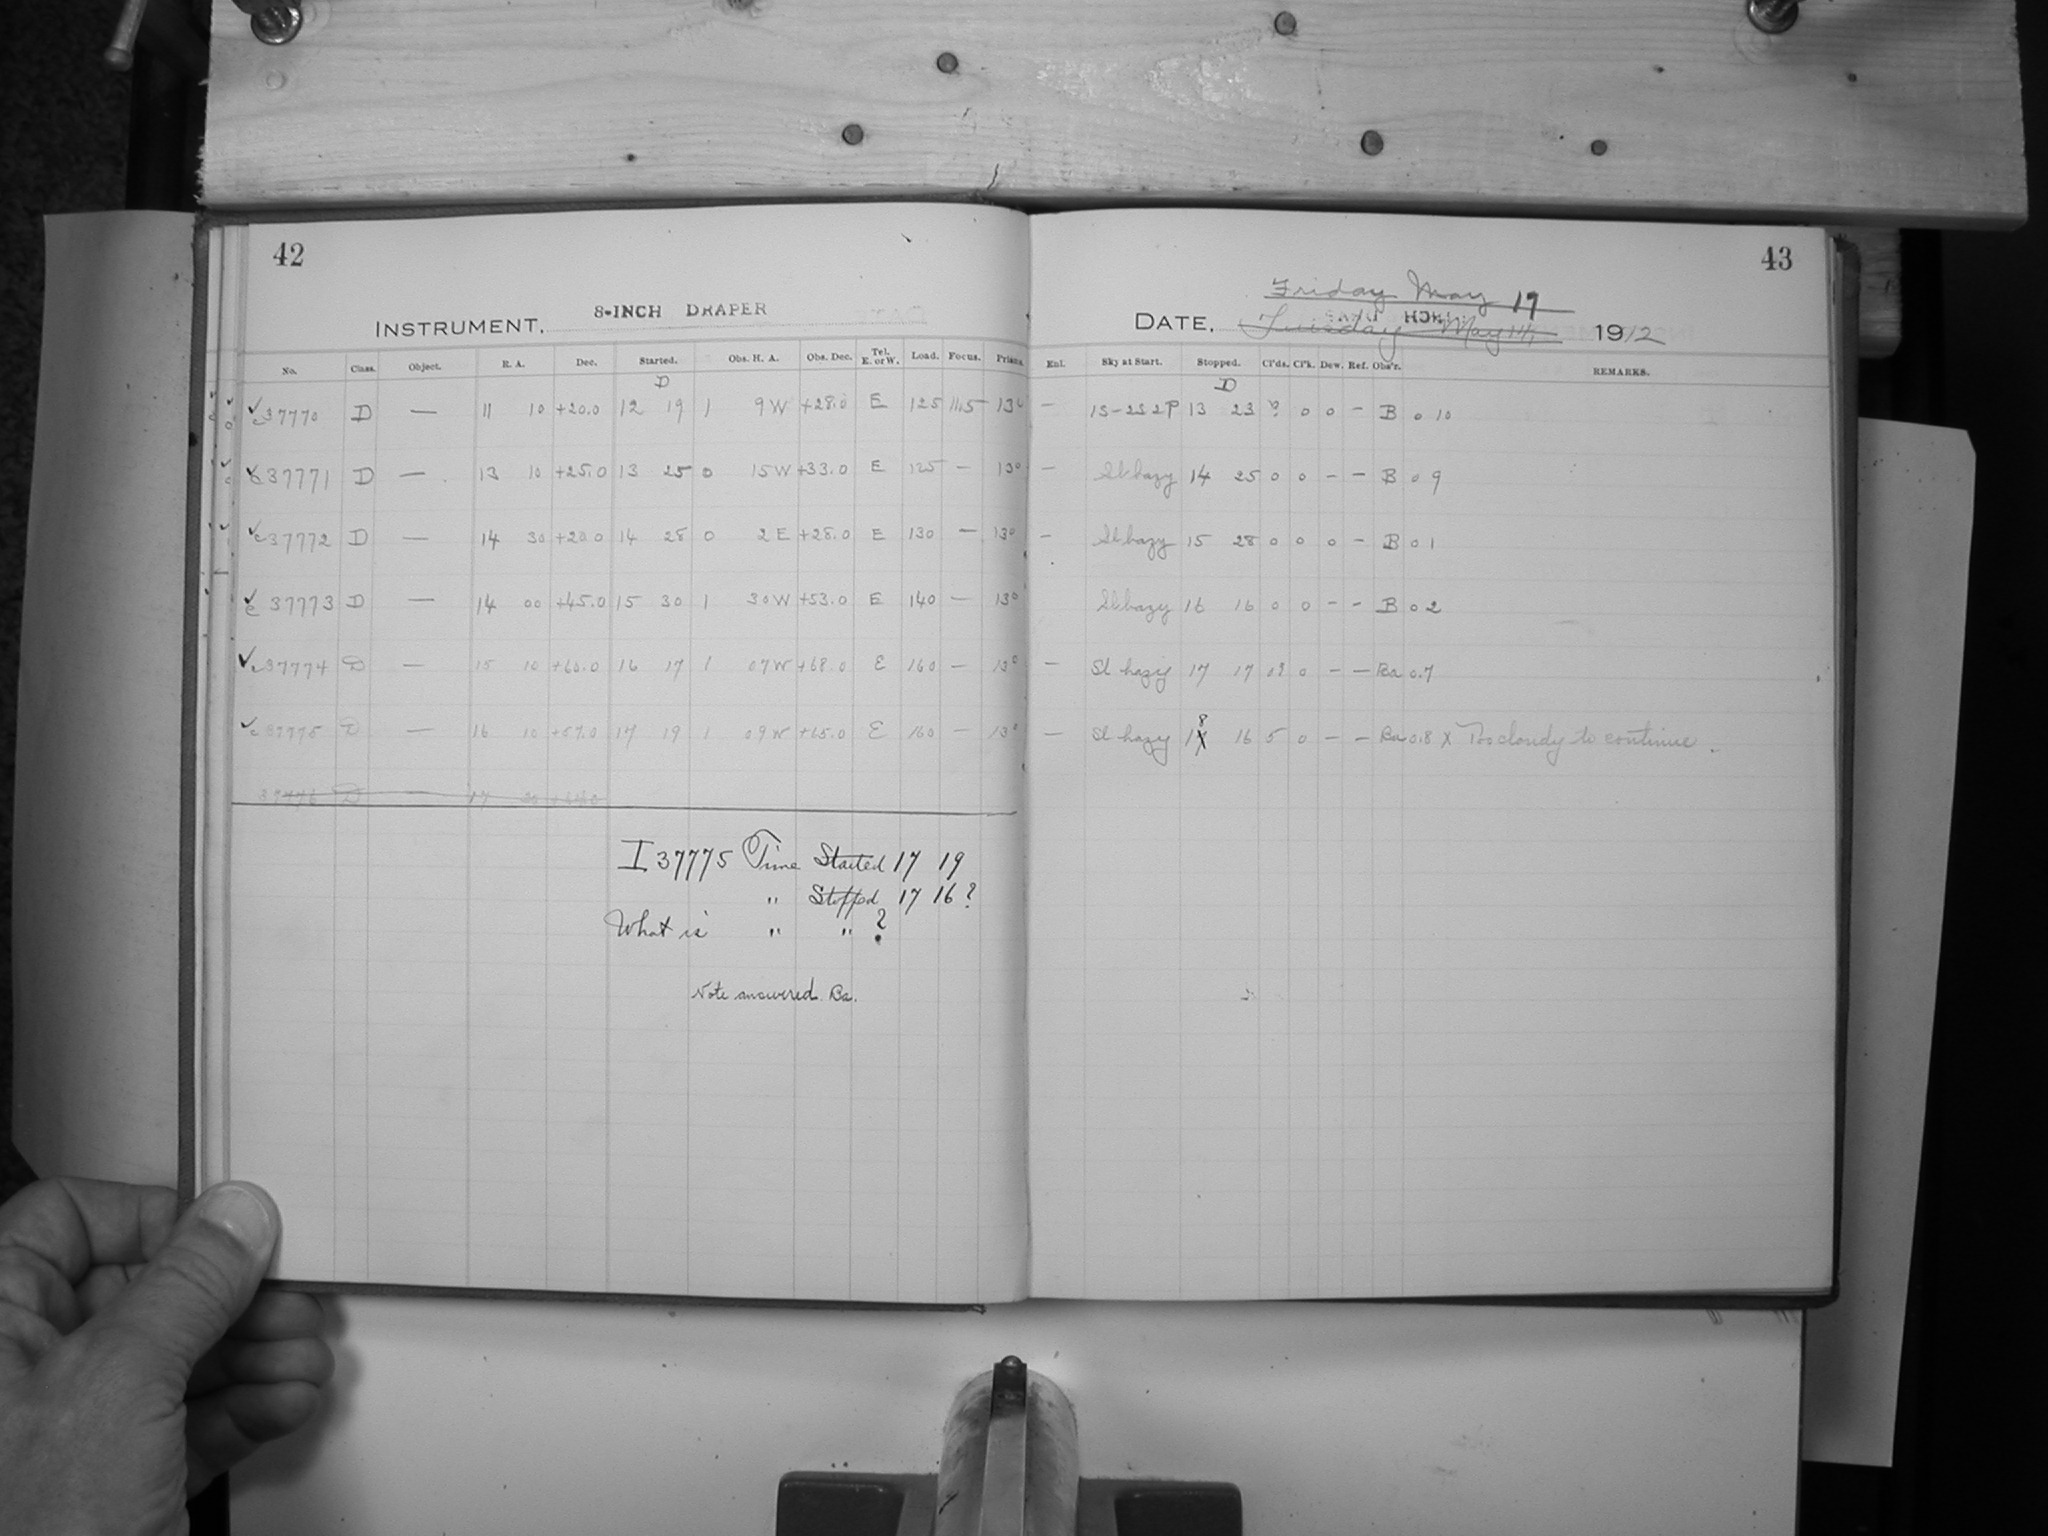 42
8-INCH DRAPER
INSTRUMENT.
No. Class. Object. R. A. Dec. Started. Obs. H. A. Obs. Dec. Tel. E. or W. Load. Focus. Prism.
D
37770 D — 11 10 +20.0 12 19 1 9 W +28.0 E 125 11.5 13°
37771 D — 13 10 +25.0 13 25 0 15 W +33.0 E 125 — 13°
37772 D — 14 30 +20.0 14 28 0 2 E +28.0 E 130 — 13°
37773 D — 14 00 +45.0 15 30 1 30 W +53.0 E 140 — 13°
37774 D — 15 10 +60.0 16 17 1 07 W +68.0 E 160 — 13°
37775 D — 16 10 +57.0 17 19 1 09 W +65.0 E 160 — 13°
37776 D 17
I 37775 Time Started 17 19
" Stopped 17 16 ?
What is " " ?
Note answered. Ba.
43
Friday May 17
DATE. Tuesday May 1912
Enl. Sky at Start. Stopped. Cl'ds. Cl'k. Dew. Ref. Obs'r. REMARKS.
D
— 1S-2S 2P 13 23 ? 0 0 — B 0 10
— Sl hazy 14 25 0 0 — — B 0 9
— Sl hazy 15 28 0 0 0 — B 0 1
Sl hazy 16 16 0 0 — — B 0 2
— Sl hazy 17 17 0 — — Ba 0.7
— Sl hazy 18 16 5 0 — — Ba 0.8 x Too cloudy to continue.